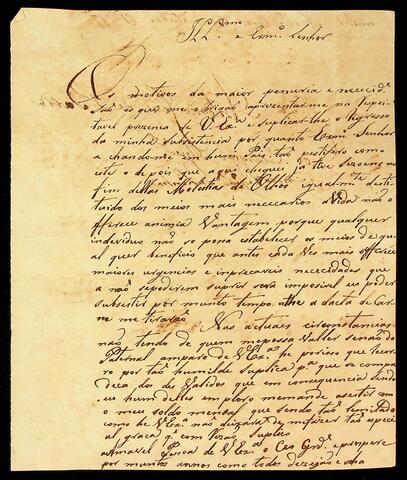 Ill.mo e Exmo. Senhor
Os motivos da maior penuria e necicid.e
saõ os que me obrigaõ aprezentarme na Respei
tavel prezenca de V. Ex.a e suplicarlhe o Regresso
da minha subsistencia por quanto Exmo. Senhor
a chandome em hum Pais taõ pestifero como
este e depois que aqui cheguei ja tive
fim dellas Molestia de Olhos igualm.te desti
tuido dos meios mais nececarios a Vida naõ o
fferece a minima Vantagem porque qualquer
individuo naõ so possa estabelecer os meios de qu
al quer beneficio que antes cada Ves mais offerece
maiores urgencias e inprecaveis necedades que
a naõ sepoderem suprir será imposivel eu poder
subsestir por munto tempo the a dacta de
me tirarão
Nas actuaes circunstancias
naõ tendo de quem mepossa Valler senaõ do
Paternal amparo de V Ex.a heporiso que recor
ro por taõ humilde suplica p.a que se compa
deca dos des Validos que em consequencia sendo
eu hum delles emploro memande asestir com
o meu soldo mensal que sendo taõ lemitado
como he V Ex.a naõ deixará de mefazer taõ especi
al graca q.e com Razaõ Suplico
Amavel Pesoa de V Ex.a o Ceo Grd.e e prospere
por muntos annos como todos dezejaõ e